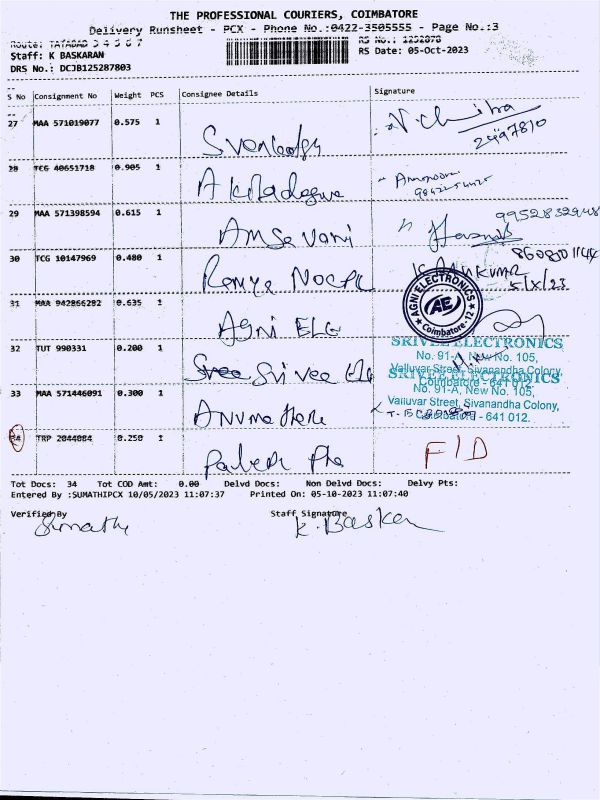 THE PROFESSIONAL COURIERS, COIMBATORE
Delivery Runsheet - PCX - Phone No.:0422-3505555 - Page No.:3
Route: TATABAD 3 4 5 6 7
RS No.: 1252878
Staff: K BASKARAN
RS Date: 05-Oct-2023
DRS No.: DCJB125287803
S No Consignment No Weight PCS Consignee Details Signature
27 MAA 571019077 0.575 1
28 TCG 40651718 0.905 1
29 MAA 571398594 0.615 1 9952832948
30 TCG 10147969 0.480 1
5/X/23
31 MAA 942866282 0.635 1 Agni ELE
AGNI ELECTRONICS
AE
Coimbatore-12
32 TUT 990331 0.200 1 Sri Vee Ele
SRIVEE ELECTRONICS
No. 91-A, New No. 105,
Valluvar Street, Sivanandha Colony,
Coimbatore - 641 012.
SRIVEE ELECTRONICS
No. 91-A, New No. 105,
Valluvar Street, Sivanandha Colony,
Coimbatore - 641 012.
33 MAA 571446091 0.300 1
34 TRP 2044084 0.250 1 F/D
Tot Docs: 34 Tot COD Amt: 0.00 Delvd Docs: Non Delvd Docs: Delvy Pts:
Entered By :SUMATHIPCX 10/05/2023 11:07:37 Printed On: 05-10-2023 11:07:40
Verified By Staff Signature
Sumathi K. Baskar